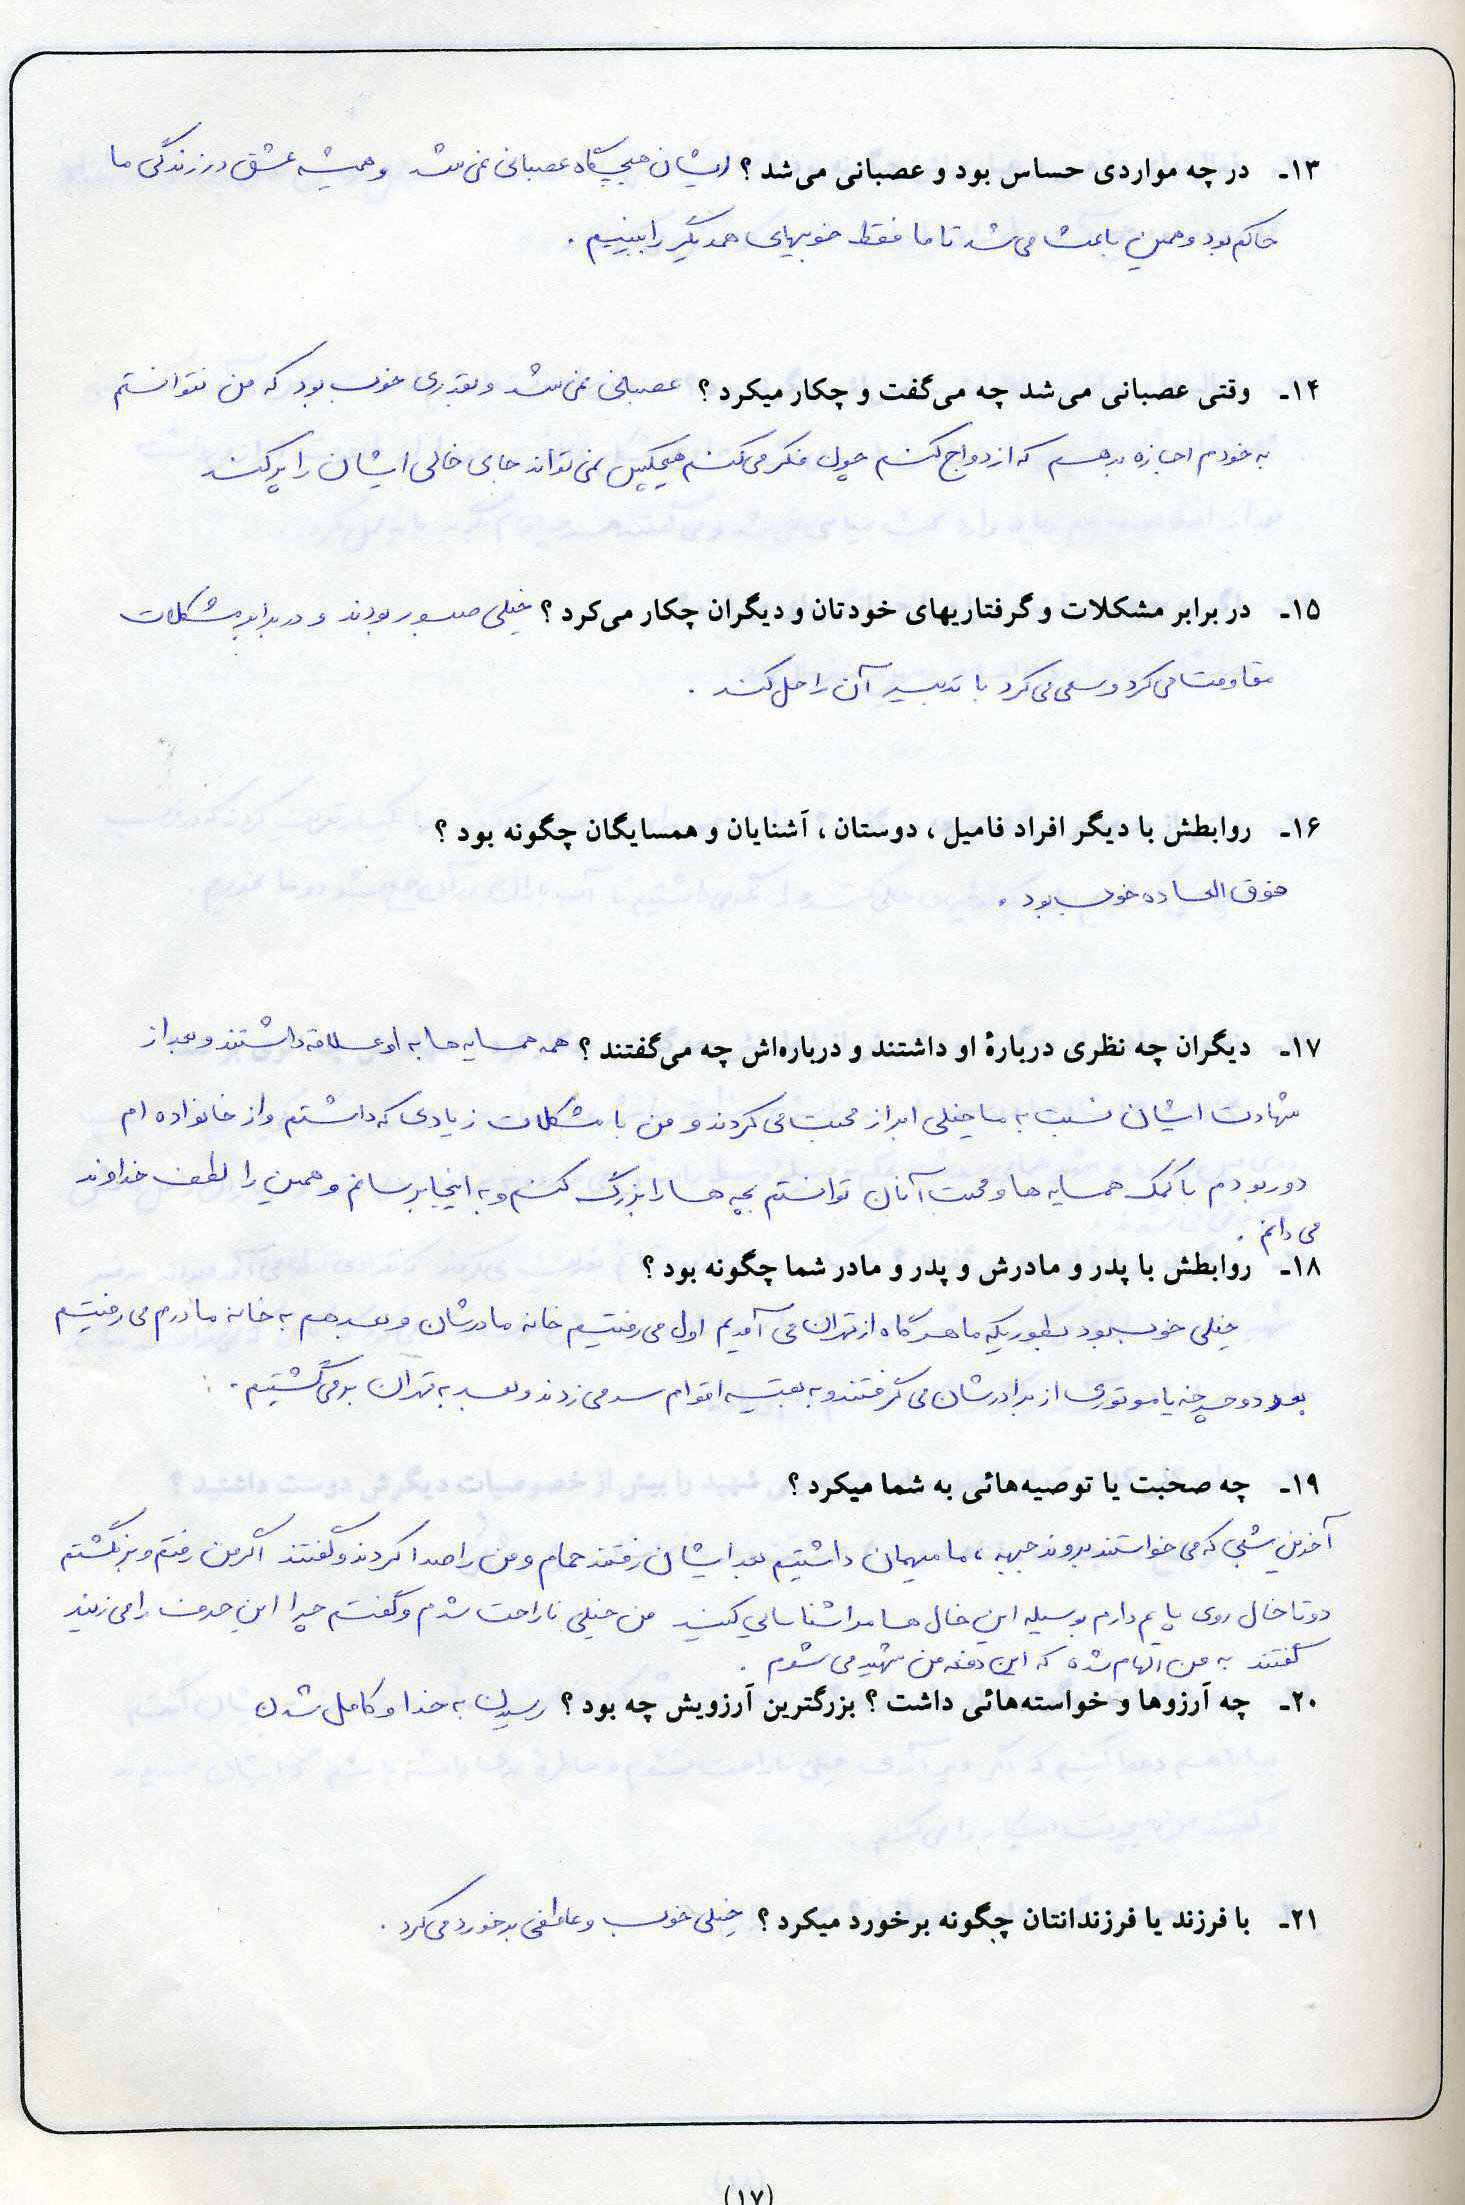 ۱۳ـ در چه مواردی حساس بود و عصبانی می‌شد ؟ ایشان هیچگاه عصبانی نمی شد و همیشه عشق در زندگی ما
حاکم بود و همین باعث می شد تا ما فقط خوبیهای همدیگر را ببینیم .
۱۴ـ وقتی عصبانی می‌شد چه می‌گفت و چکار میکرد ؟ عصبانی نمی شد و بقدری خوب بود که من نتوانستم
به خودم اجازه بدهم که ازدواج کنم چون فکر می کنم هیچکس نمی تواند جای خالی ایشان را پر کند
۱۵ـ در برابر مشکلات و گرفتاریهای خودتان و دیگران چکار می‌کرد ؟ خیلی صبور بودند و در برابر مشکلات
مقاومت می کرد و سعی می کرد با تدبیر آن را حل کند .
۱۶ـ روابطش با دیگر افراد فامیل ، دوستان ، آشنایان و همسایگان چگونه بود ؟
فوق العاده خوب بود .
۱۷ـ دیگران چه نظری دربارۀ او داشتند و درباره‌اش چه می‌گفتند ؟ همه همسایه ها به او علاقه داشتند و بعد از
شهادت ایشان نسبت به ما خیلی ابراز محبت می کردند و من با مشکلات زیادی که داشتم و از خانواده ام
دور بودم با کمک همسایه ها و محبت آنان توانستم بچه ها را بزرگ کنم و به اینجا برسانم و همین را لطف خداوند
می دانم .
۱۸ـ روابطش با پدر و مادرش و پدر و مادر شما چگونه بود ؟
خیلی خوب بود بطوریکه ما هر گاه از تهران می آمدیم اول می رفتیم خانه مادرشان و بعد هم به خانه مادرم می رفتیم
بعد دوچرخه یا موتوری از برادرشان می گرفتند و به بقیه اقوام سر می زدند و بعد به تهران بر می گشتیم .
۱۹ـ چه صحبت یا توصیه‌هائی به شما میکرد ؟
آخرین شبی که می خواستند بروند جبهه ، ما میهمان داشتیم بعد ایشان رفتند حمام و من را صدا کردند و گفتند اگر من رفتم و برنگشتم
دو تا خال روی پایم دارم بوسیله این خال ها مرا شناسایی کنید من خیلی ناراحت شدم و گفتم چرا این حرف را می زنید
گفتند به من الهام شده که این دفعه من شهید می شوم .
۲۰ـ چه آرزوها و خواسته‌هائی داشت ؟ بزرگترین آرزویش چه بود ؟ رسیدن به خدا و کامل شدن
۲۱ـ با فرزند یا فرزندانتان چگونه برخورد میکرد ؟ خیلی خوب و عاطفی برخورد می کرد .
(۱۷)